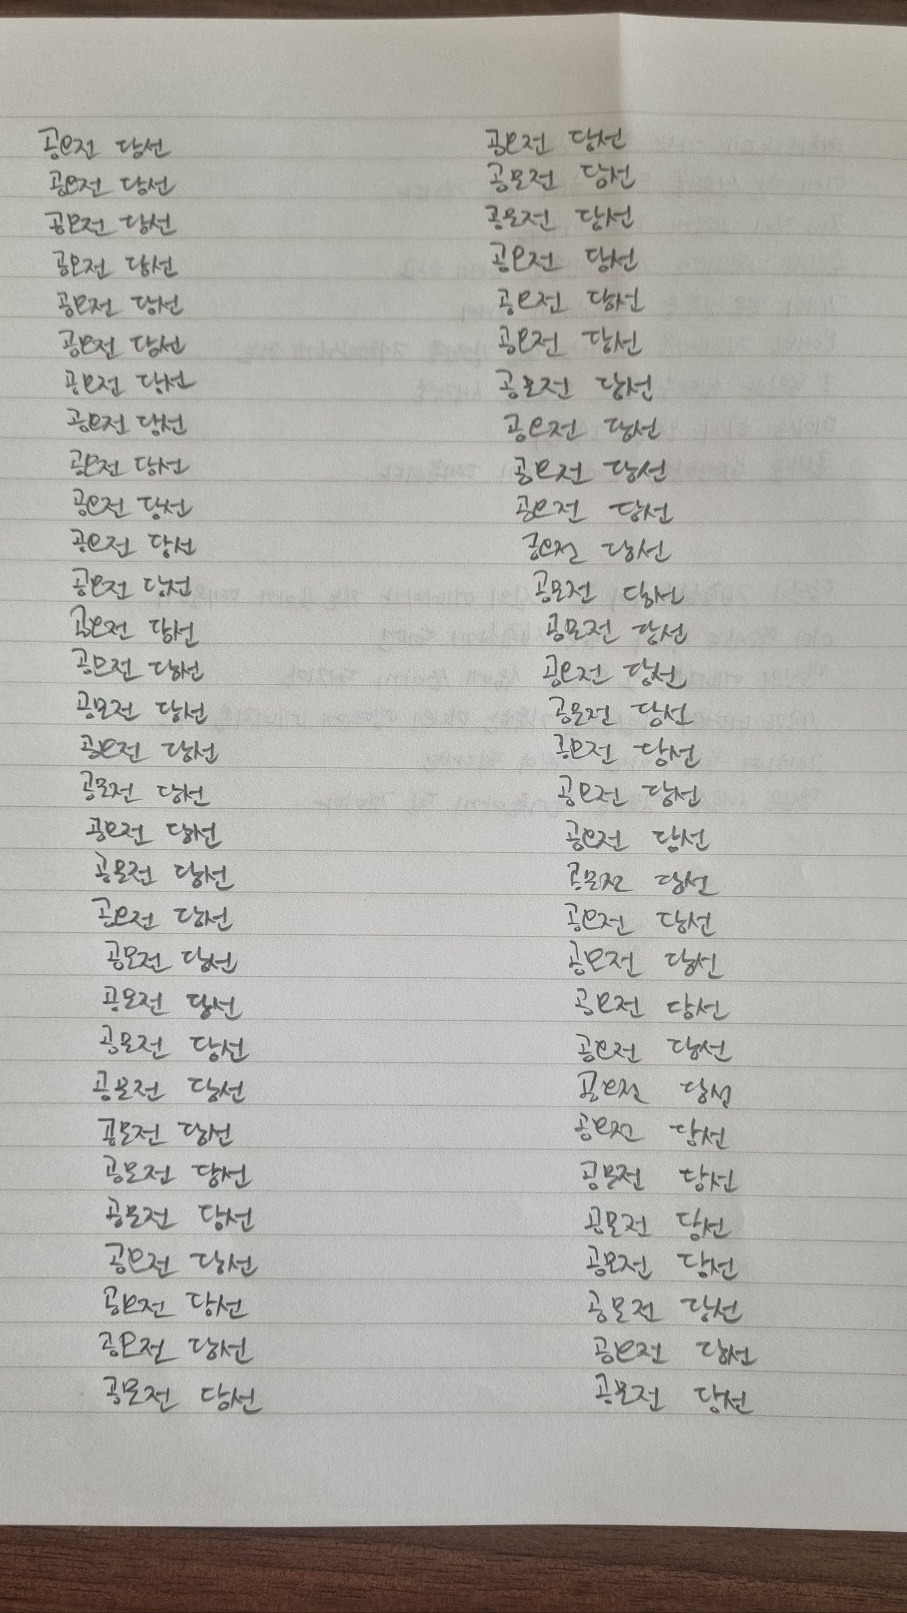 공모전 당선
공모전 당선
공모전 당선
공모전 당선
공모전 당선
공모전 당선
공모전 당선
공모전 당선
공모전 당선
공모전 당선
공모전 당선
공모전 당선
공모전 당선
공모전 당선
공모전 당선
공모전 당선
공모전 당선
공모전 당선
공모전 당선
공모전 당선
공모전 당선
공모전 당선
공모전 당선
공모전 당선
공모전 당선
공모전 당선
공모전 당선
공모전 당선
공모전 당선
공모전 당선
공모전 당선
공모전 당선
공모전 당선
공모전 당선
공모전 당선
공모전 당선
공모전 당선
공모전 당선
공모전 당선
공모전 당선
공모전 당선
공모전 당선
공모전 당선
공모전 당선
공모전 당선
공모전 당선
공모전 당선
공모전 당선
공모전 당선
공모전 당선
공모전 당선
공모전 당선
공모전 당선
공모전 당선
공모전 당선
공모전 당선
공모전 당선
공모전 당선
공모전 당선
공모전 당선
공모전 당선
공모전 당선